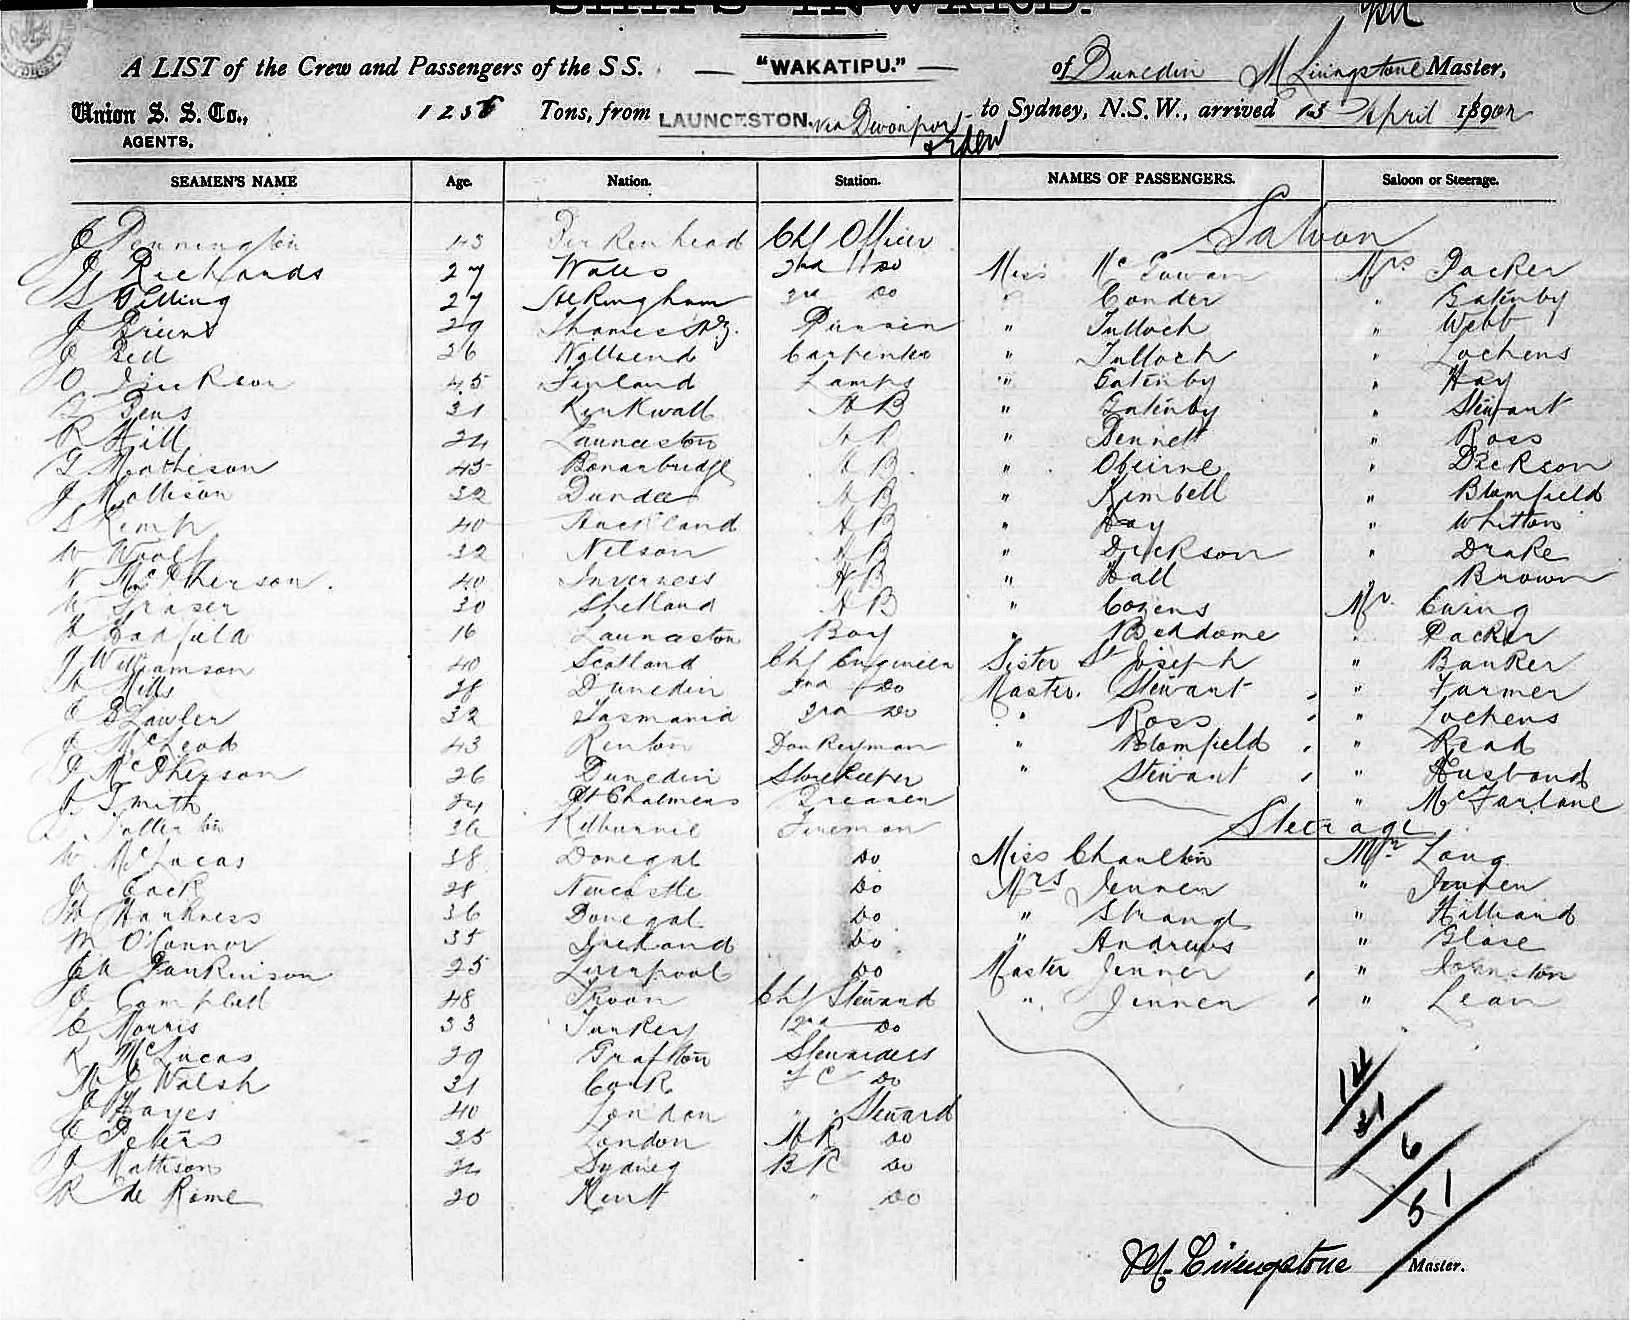 SHIPS INWARD.
A LIST of the Crew and Passengers of the S S. — "WAKATIPU." — of Dunedin M Livingstone Master,
Union S. S. Co., 1236 Tons, from LAUNCESTON. via Devonport to Sydney, N.S.W., arrived 13 April 190
AGENTS. & Eden
SEAMEN'S NAME Age. Nation. Station. NAMES OF PASSENGERS. Saloon or Steerage.
Saloon
J Pennington 43 Birkenhead Chf Officer
J Richards 27 Wales 2nd Do Miss McGowan Mrs Packer
S Gilling 27 3rd Do " Conder " Gatenby
J 29 Thames NZ. " Tulloch " Webb
J Bell 26 Wallsend Carpenter " Tulloch " Lochens
O 45 Finland Lamps " Gatenby " Hay
31 Kirkwall A B " Gatenby " Stewart
R Hill 24 Launceston A B " Bennett " Ross
G Mathieson 45 Bonarbridge A B " Obeirne " Dickson
J Mollison 32 Dundee A B " Kimbell " Blomfield
S Kemp 40 Auckland A B " Hay " Whitton
W Woolf 32 Nelson A B " Dickson " Drake
McPherson 40 Inverness A B " Hall Brown
W Fraser 30 Shetland A B " Cozens Mr. Ewing
H Hadfield 16 Launceston Boy " Beddome " Packer
J Williamson 40 Scotland Chf Engineer Sister St Joseph " Banker
A Mills 28 Dunedin 2nd Do Master. Stewart " Farmer
Lawler 32 Tasmania 3rd Do " Ross " Lochens
J McLeod 43 Renton Donkeyman " Blomfield " Read
J McPherson 26 Dunedin Storekeeper " Stewart " Husband
J Smith 24 Pt Chalmers Greaser " McFarlane
Steerage
Fullerton 36 Kilburnie Fireman
W McLucas 38 Donegal Do Miss Charlton Mr Long
J Cack 28 Newcastle Do Mrs Jenner " Jenner
W Harkness 36 Donegal Do " Strang " Hilliard
M O'Connor 35 Ireland Do " Andrews " Glase
J Jankinson 25 Liverpool Do Master Jenner " Johnston
J Campbell 48 Troon Chf Steward " Jenner " Lean
C Morris 33 Turkey 2nd Do
K McLucas 29 Grafton Stewardess
M Walsh 31 Cork F C Do
J Hayes 40 London " " Steward
J Peters 35 London M R Do
J Mattison 22 Sydney B R Do
R de Rome 20 Kent " Do
14
31
6
51
M. Livingstone Master.